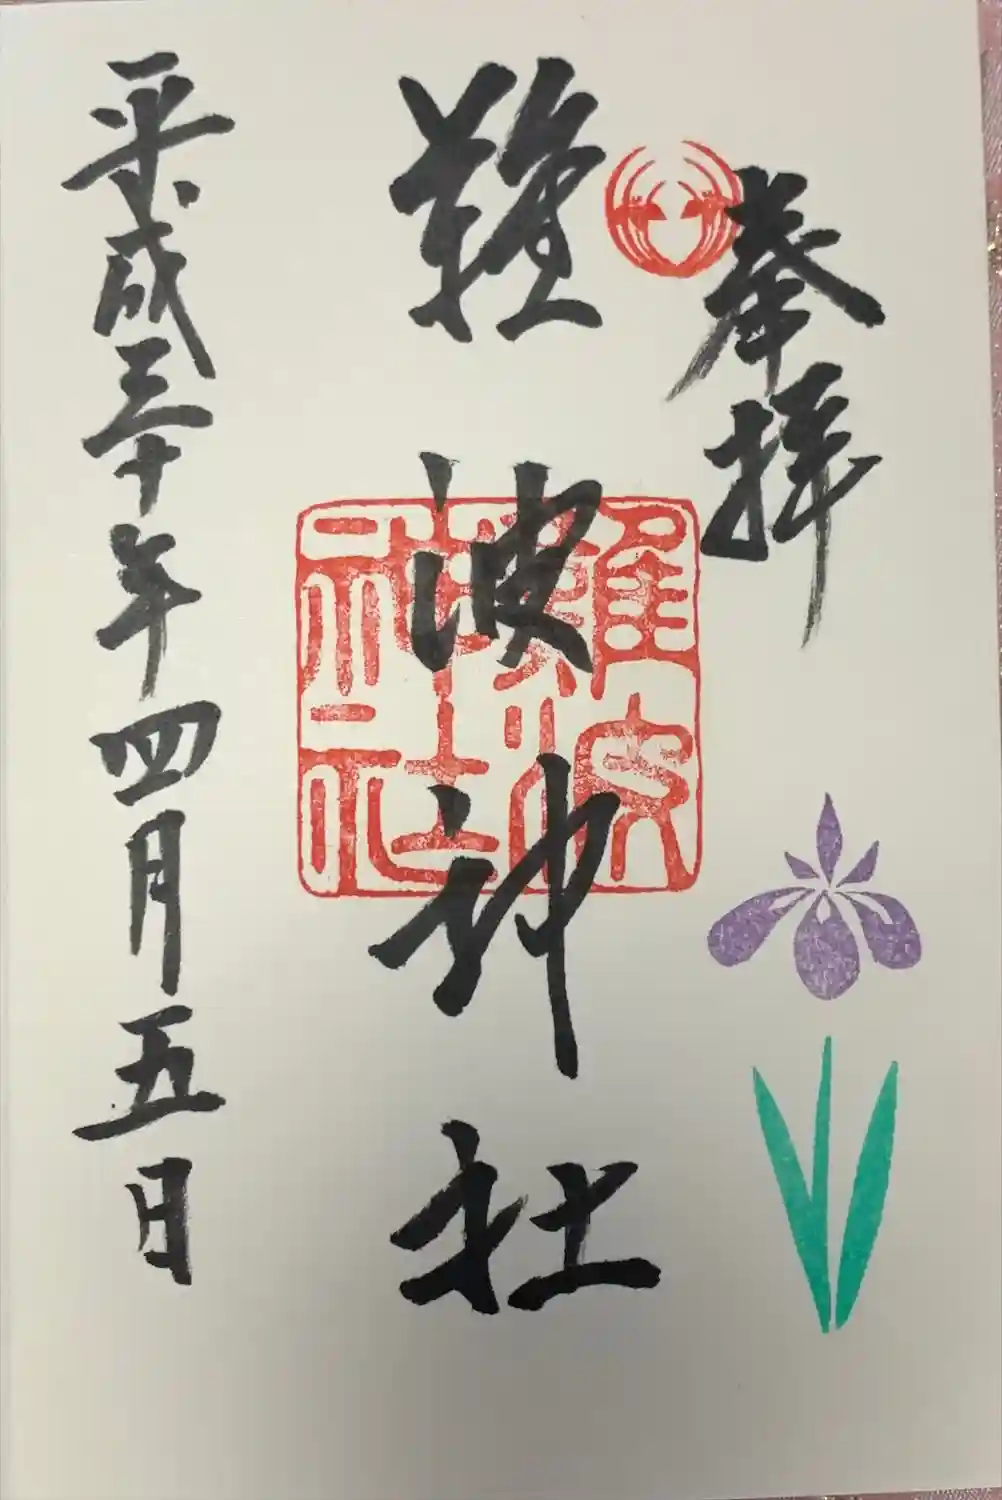 奉拝
難波神社
難波神社
平成三十年四月五日